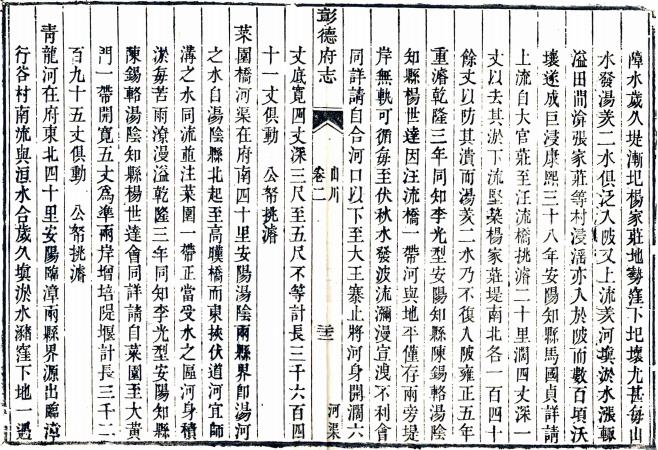 障水歲久堤漸圯楊家莊地勢窪下圯壞尤甚每山
水發湯羑二水俱泛入陂又上流羑河壞淤水漲輒
溢田間渰張家莊等村浸滛亦入於陂而數百頃沃
壤遂成巨浸康熙三十八年安陽知縣馬國貞詳請
上流自大官莊至汪流橋挑濬二十里濶四丈深一
丈以去其淤下流堅築楊家莊堤南北各一百四十
餘丈以防其潰而湯羑二水乃不復入陂雍正五年
重濬乾隆三年同知李光型安陽知縣陳錫輅湯陰
知縣楊世達因汪流橋一帶河與地平僅存兩旁堤
岸無軌可循每至伏秋水發波流瀰漫宣洩不利會
同詳請自合河口以下至大王寨止將河身開濶六
彰德府志
卷二
山川
三
河渠
丈底寬四丈深三尺至五尺不等計長三千六百四
十一丈俱動 公帑挑濬
菜園橋河渠在府南四十里安陽湯陰兩縣界卽湯河
之水自湯陰縣北起至高䁱橋而東挾伏道河宜師
溝之水同流並注菜園一帶正當受水之區河身積
淤每苦雨潦漫溢乾隆三年同知李光型安陽知縣
陳錫輅湯陰知縣楊世達會同詳請自菜園至大黃
門一帶開寬五丈爲準兩岸增培隄堰計長三千二
百九十五丈俱動 公帑挑濬
靑龍河在府東北四十里安陽臨漳兩縣界源出臨漳
行谷村南流與洹水合歲久壞淤水瀦窪下地一遇